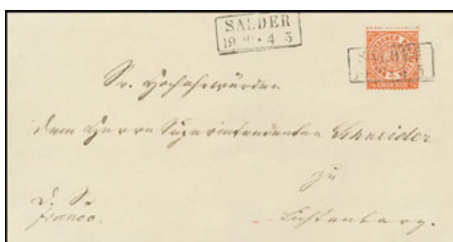 SALDER
19 10 • 4 5
Sr. Hochehrwürden
dem Herrn Superintendenten Schneider
zu
Lichtenberg.
franco.